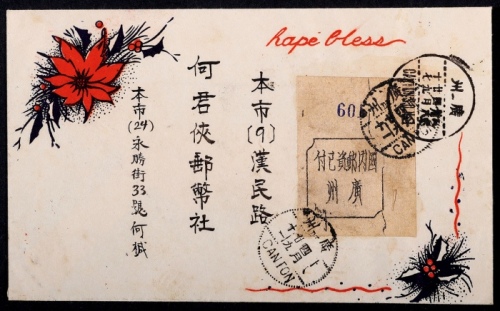 hape bless
本市(9)漢民路
何君俠郵幣社
本市(24)永勝街33號何
60
國內郵資已付
廣州
廣州
CANTON
廣州
CANTON
廣州